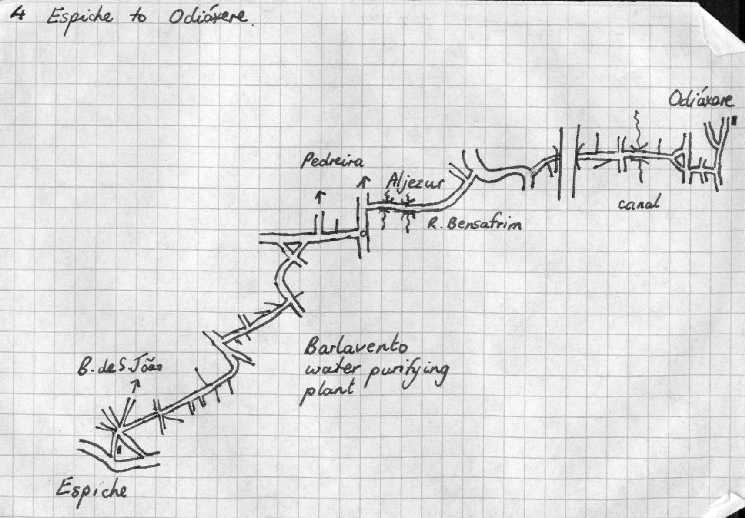 4 Espiche to Odiáxere.
Odiáxere
Pedreira
Aljezur
canal
R. Bensafrim
Barlavento
water purifying
plant
B. de S. João
Espiche